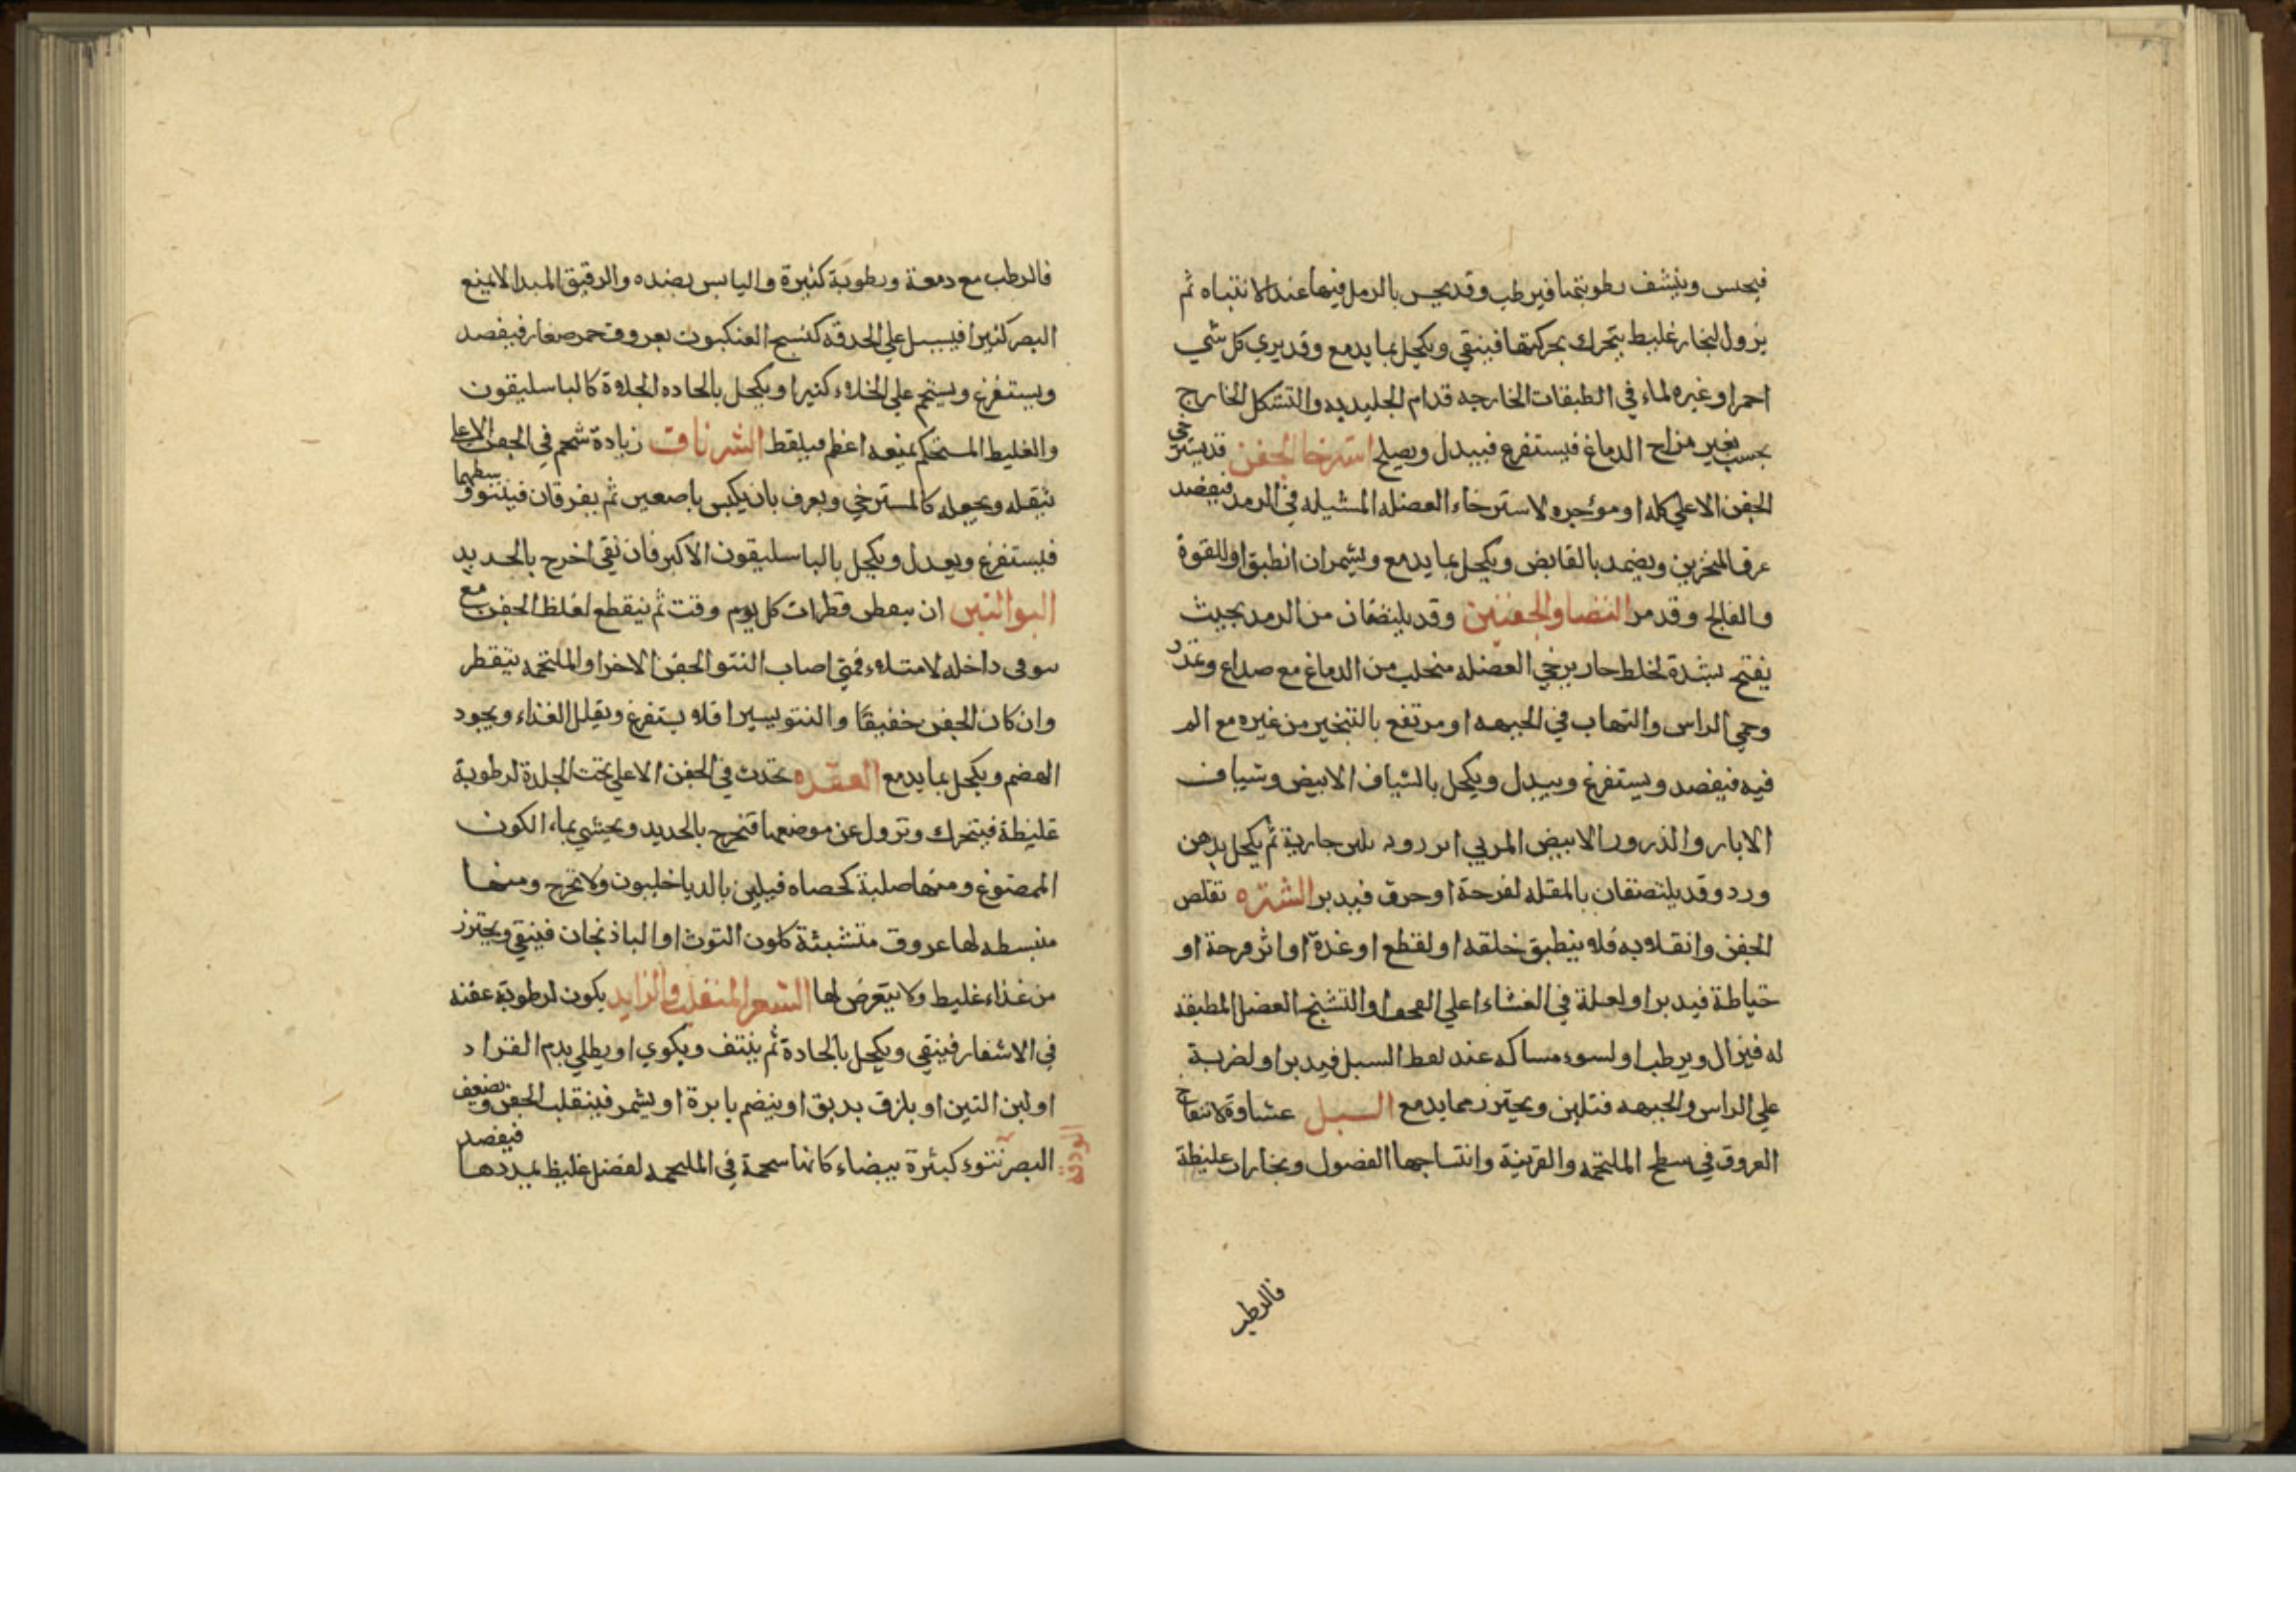 فيحس وينشف رطوبتها فيرطب وقد يحس بالرمل فيها عند الانتباه ثم
يزول لبخار غليظ يتحرك بحركتها فينقي ويكحل بما يدمع وقد يري كل شي
احمر او غيره لماء في الطبقات الخارجه قدام الجليديه والتشكل الخارج
بحسب تغير مزاج الدماغ فيستفرغ فيبدل ويصلح استرخا الجفن قد يسترخي
الجفن الاعلي كله او موخره لاسترخاء العضله المشيله في الرمد فيفصد
عرق المنخرين ويضمد بالقابض ويكحل بما يدمع ويشمر ان انطبق او للقوة
والفالج وقد مر التصاق الجفنين وقد يلتصقان من الرمد بحيث
يفتح بشدة لخلط حار يرخي العضله منحلب من الدماغ مع صداع وتمدد
وحمي الراس والتهاب في الجبهه او مرتفع بالتبخير من غيره مع الم
فيه فيفصد ويستفرغ ويبدل ويكحل بالشياف الابيض وشياف
الابار والذرور الابيض المربي بلبن جارية ثم يكحل بدهن
ورد وقد يلتصقان بالمقله لقرحة او حرق فيدبر الشتره تقلص
الجفن وانقلابه فلا ينطبق خلقه او لقطع او غدة او اثر قرحة او
خياطة فيدبر او لعلة في الغشاء اعلي القحف او التشنج العضل المطبقه
له فيزال ويرطب او لسوء مساكه عند لقط السبل فيدبر او لضربة
علي الراس والجبهه فتلين ويحترز مما يدمع السبل غشاوة لانتفاخ
العروق في سطح الملتحمه والقرنية وانتساجها الفضول وبخارات غليظة
فالرطب
فالرطب مع دمعة ورطوبة كثيرة واليابس بضده والرقيق المبدا لا يمنع
البصر كثيرا فيسبل علي الحدقه كنسج العنكبوت بعروق حمر صغار فيفصد
ويستفرغ ويستحم علي الخلاء كثيرا ويكحل بالحاده الجلاة كالباسليقون
والغليظ المستحكم يمنعه اعظم فيلقط الشرناق زيادة شحم في الجفن الاعلي
تثقله ويجعله كالمسترخي ويعرف بان يكبس باصعين ثم يفرقان فينتو وسطهما
فيستفرغ ويعدل ويكحل بالباسليقون الاكبر فان نقي اخرج بالحديد
ان يقطر قطرات كل يوم وقت ثم ينقطع لغلظ الجفن مع
داخله لامتلاء فمتي اصاب النتو الجفن الاخر او الملتحمه يتقطر
وان كان الجفن خفيفا والنتو يسيرا فلا يستفرغ ويقلل الغذاء ويجود
الهضم ويكحل بما يدمع العقده تحدث في الجفن الاعلي تحت الجلدة لرطوبة
غليظة فيتحرك وتزول عن موضعها فتخرج بالحديد ويحشي بماء الكمون
الممضوغ ومنها صلبة كحصاه فيلين بالدياخليون ولا تخرج ومنها
منبسطه لها عروق متشبثة كلون التوث او الباذنجان فينقي ويحترز
من غذاء غليظ ولا يتعرض لها الشعر المنقلب والزايد يكون لرطوبة عفنه
في الاشفار فينقي ويكحل بالحادة ثم ينتف ويكوي او يطلي بدم القراد
او لبن التين او يلزق بدبق او ينضم بابرة او يشمر فينقلب الجفن ويضعف
البصر نتوء كبثرة بيضاء كانها شحمة في الملتحمه لفضل غليظ يمددها فيفصد
الودقه